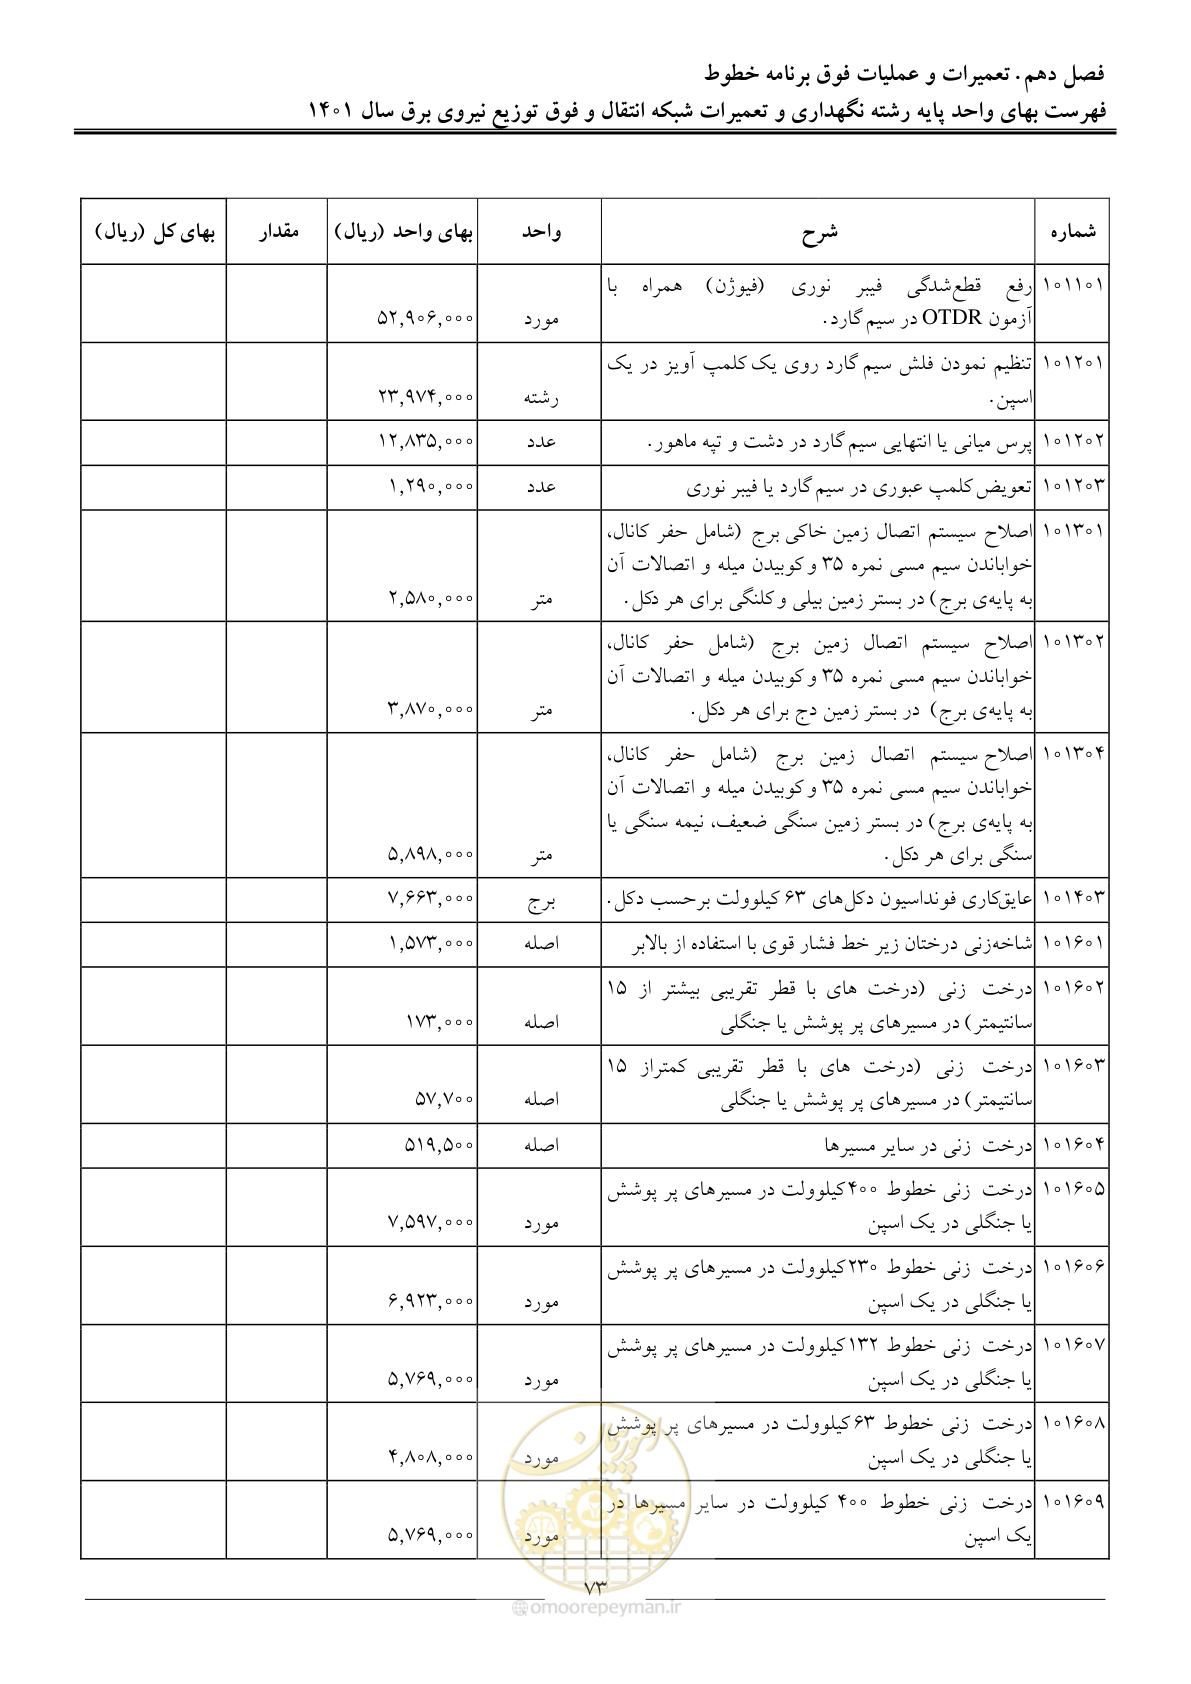 فصل دهم. تعمیرات و عملیات فوق برنامه خطوط
فهرست بهای واحد پایه رشته نگهداری و تعمیرات شبکه انتقال و فوق توزیع نیروی برق سال ۱۴۰۱
شماره شرح واحد بهای واحد (ریال) مقدار بهای کل (ریال)
۱۰۱۱۰۱ رفع قطع‌شدگی فیبر نوری (فیوژن) همراه با
آزمون OTDR در سیم گارد. مورد ۵۲,۹۰۶,۰۰۰
۱۰۱۲۰۱ تنظیم نمودن فلش سیم گارد روی یک کلمپ آویز در یک
اسپن. رشته ۲۳,۹۷۴,۰۰۰
۱۰۱۲۰۲ پرس میانی یا انتهایی سیم گارد در دشت و تپه ماهور. عدد ۱۲,۸۳۵,۰۰۰
۱۰۱۲۰۳ تعویض کلمپ عبوری در سیم گارد یا فیبر نوری عدد ۱,۲۹۰,۰۰۰
۱۰۱۳۰۱ اصلاح سیستم اتصال زمین خاکی برج (شامل حفر کانال،
خواباندن سیم مسی نمره ۳۵ و کوبیدن میله و اتصالات آن
به پایه‌ی برج) در بستر زمین بیلی و کلنگی برای هر دکل. متر ۲,۵۸۰,۰۰۰
۱۰۱۳۰۲ اصلاح سیستم اتصال زمین برج (شامل حفر کانال،
خواباندن سیم مسی نمره ۳۵ و کوبیدن میله و اتصالات آن
به پایه‌ی برج) در بستر زمین دج برای هر دکل. متر ۳,۸۷۰,۰۰۰
۱۰۱۳۰۴ اصلاح سیستم اتصال زمین برج (شامل حفر کانال،
خواباندن سیم مسی نمره ۳۵ و کوبیدن میله و اتصالات آن
به پایه‌ی برج) در بستر زمین سنگی ضعیف، نیمه سنگی یا
سنگی برای هر دکل. متر ۵,۸۹۸,۰۰۰
۱۰۱۴۰۳ عایق‌کاری فونداسیون دکل‌های ۶۳ کیلوولت برحسب دکل. برج ۷,۶۶۳,۰۰۰
۱۰۱۶۰۱ شاخه‌زنی درختان زیر خط فشار قوی با استفاده از بالابر اصله ۱,۵۷۳,۰۰۰
۱۰۱۶۰۲ درخت زنی (درخت های با قطر تقریبی بیشتر از ۱۵
سانتیمتر) در مسیرهای پر پوشش یا جنگلی اصله ۱۷۳,۰۰۰
۱۰۱۶۰۳ درخت زنی (درخت های با قطر تقریبی کمتراز ۱۵
سانتیمتر) در مسیرهای پر پوشش یا جنگلی اصله ۵۷,۷۰۰
۱۰۱۶۰۴ درخت زنی در سایر مسیرها اصله ۵۱۹,۵۰۰
۱۰۱۶۰۵ درخت زنی خطوط ۴۰۰کیلوولت در مسیرهای پر پوشش
یا جنگلی در یک اسپن مورد ۷,۵۹۷,۰۰۰
۱۰۱۶۰۶ درخت زنی خطوط ۲۳۰کیلوولت در مسیرهای پر پوشش
یا جنگلی در یک اسپن مورد ۶,۹۲۳,۰۰۰
۱۰۱۶۰۷ درخت زنی خطوط ۱۳۲کیلوولت در مسیرهای پر پوشش
یا جنگلی در یک اسپن مورد ۵,۷۶۹,۰۰۰
۱۰۱۶۰۸ درخت زنی خطوط ۶۳کیلوولت در مسیرهای پر پوشش
یا جنگلی در یک اسپن مورد ۴,۸۰۸,۰۰۰
۱۰۱۶۰۹ درخت زنی خطوط ۴۰۰ کیلوولت در سایر مسیرها در
یک اسپن مورد ۵,۷۶۹,۰۰۰
امور پیمان
۷۳
omoorepeyman.ir